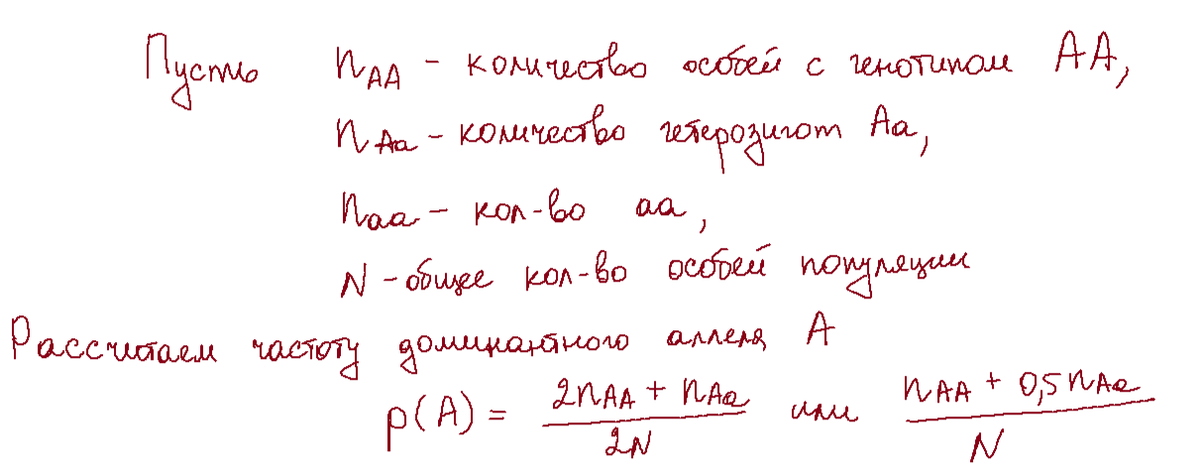 Пусть n_AA - количество особей с генотипом AA,
n_Aa - количество гетерозигот Aa,
n_aa - кол-во aa,
N - общее кол-во особей популяции
Рассчитаем частоту доминантного аллеля A
p(A) = (2n_AA + n_Aa)/(2N) или (n_AA + 0,5n_Aa)/N